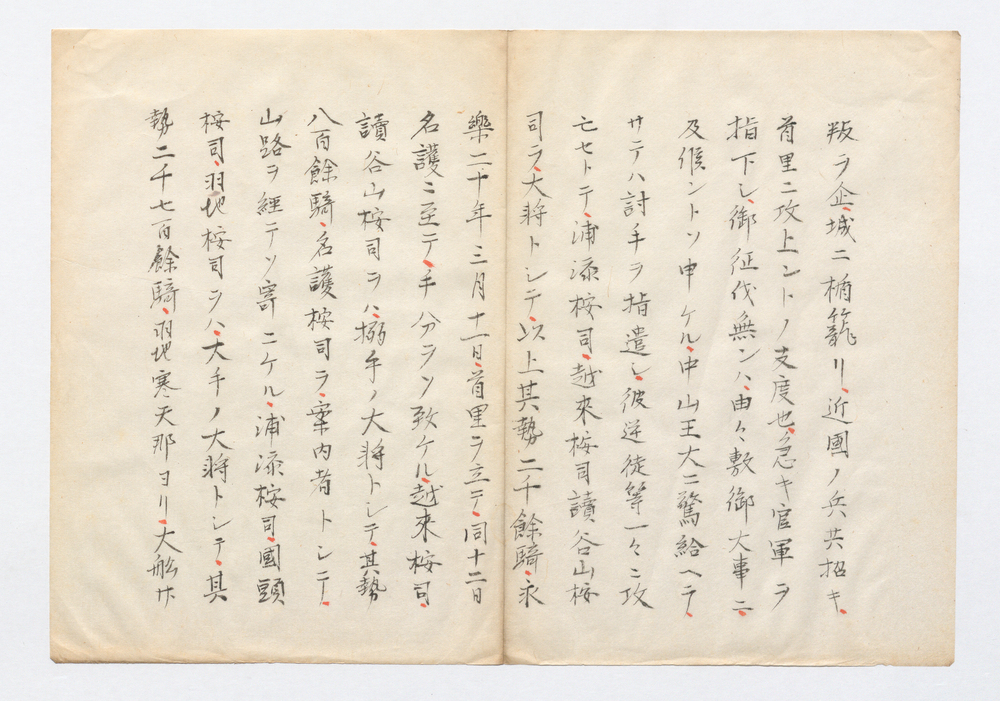 叛ヲ企、城ニ楯籠リ、近國ノ兵共招キ、
首里ニ攻上ントノ支度也、急キ官軍ヲ
指下シ、御征伐無ンハ、由々敷御大事ニ、
及候ントソ申ケル、中山王大ニ驚給ヘテ、
サテハ討手ヲ指遣シ、彼逆徒等一々ニ攻
亡セトテ、浦添桉司、越來桉司讀谷山桉
司ヲ、大將トシテ、以上其勢二千餘騎、永
樂二十年三月十一日、首里ヲ立テ、同十二日
名護ニ至テ、手分ヲソ致ケル、越來桉司、
讀谷山桉司ヲハ、搦手ノ大將トシテ、其勢
八百餘騎、名護桉司ヲ案内者トシテ、
山路ヲ經テソ寄ニケル、浦添桉司、國頭
桉司、羽地桉司ヲハ、大手ノ大將トシテ、其
勢二千七百餘騎、羽地寒天那ヨリ、大船廾